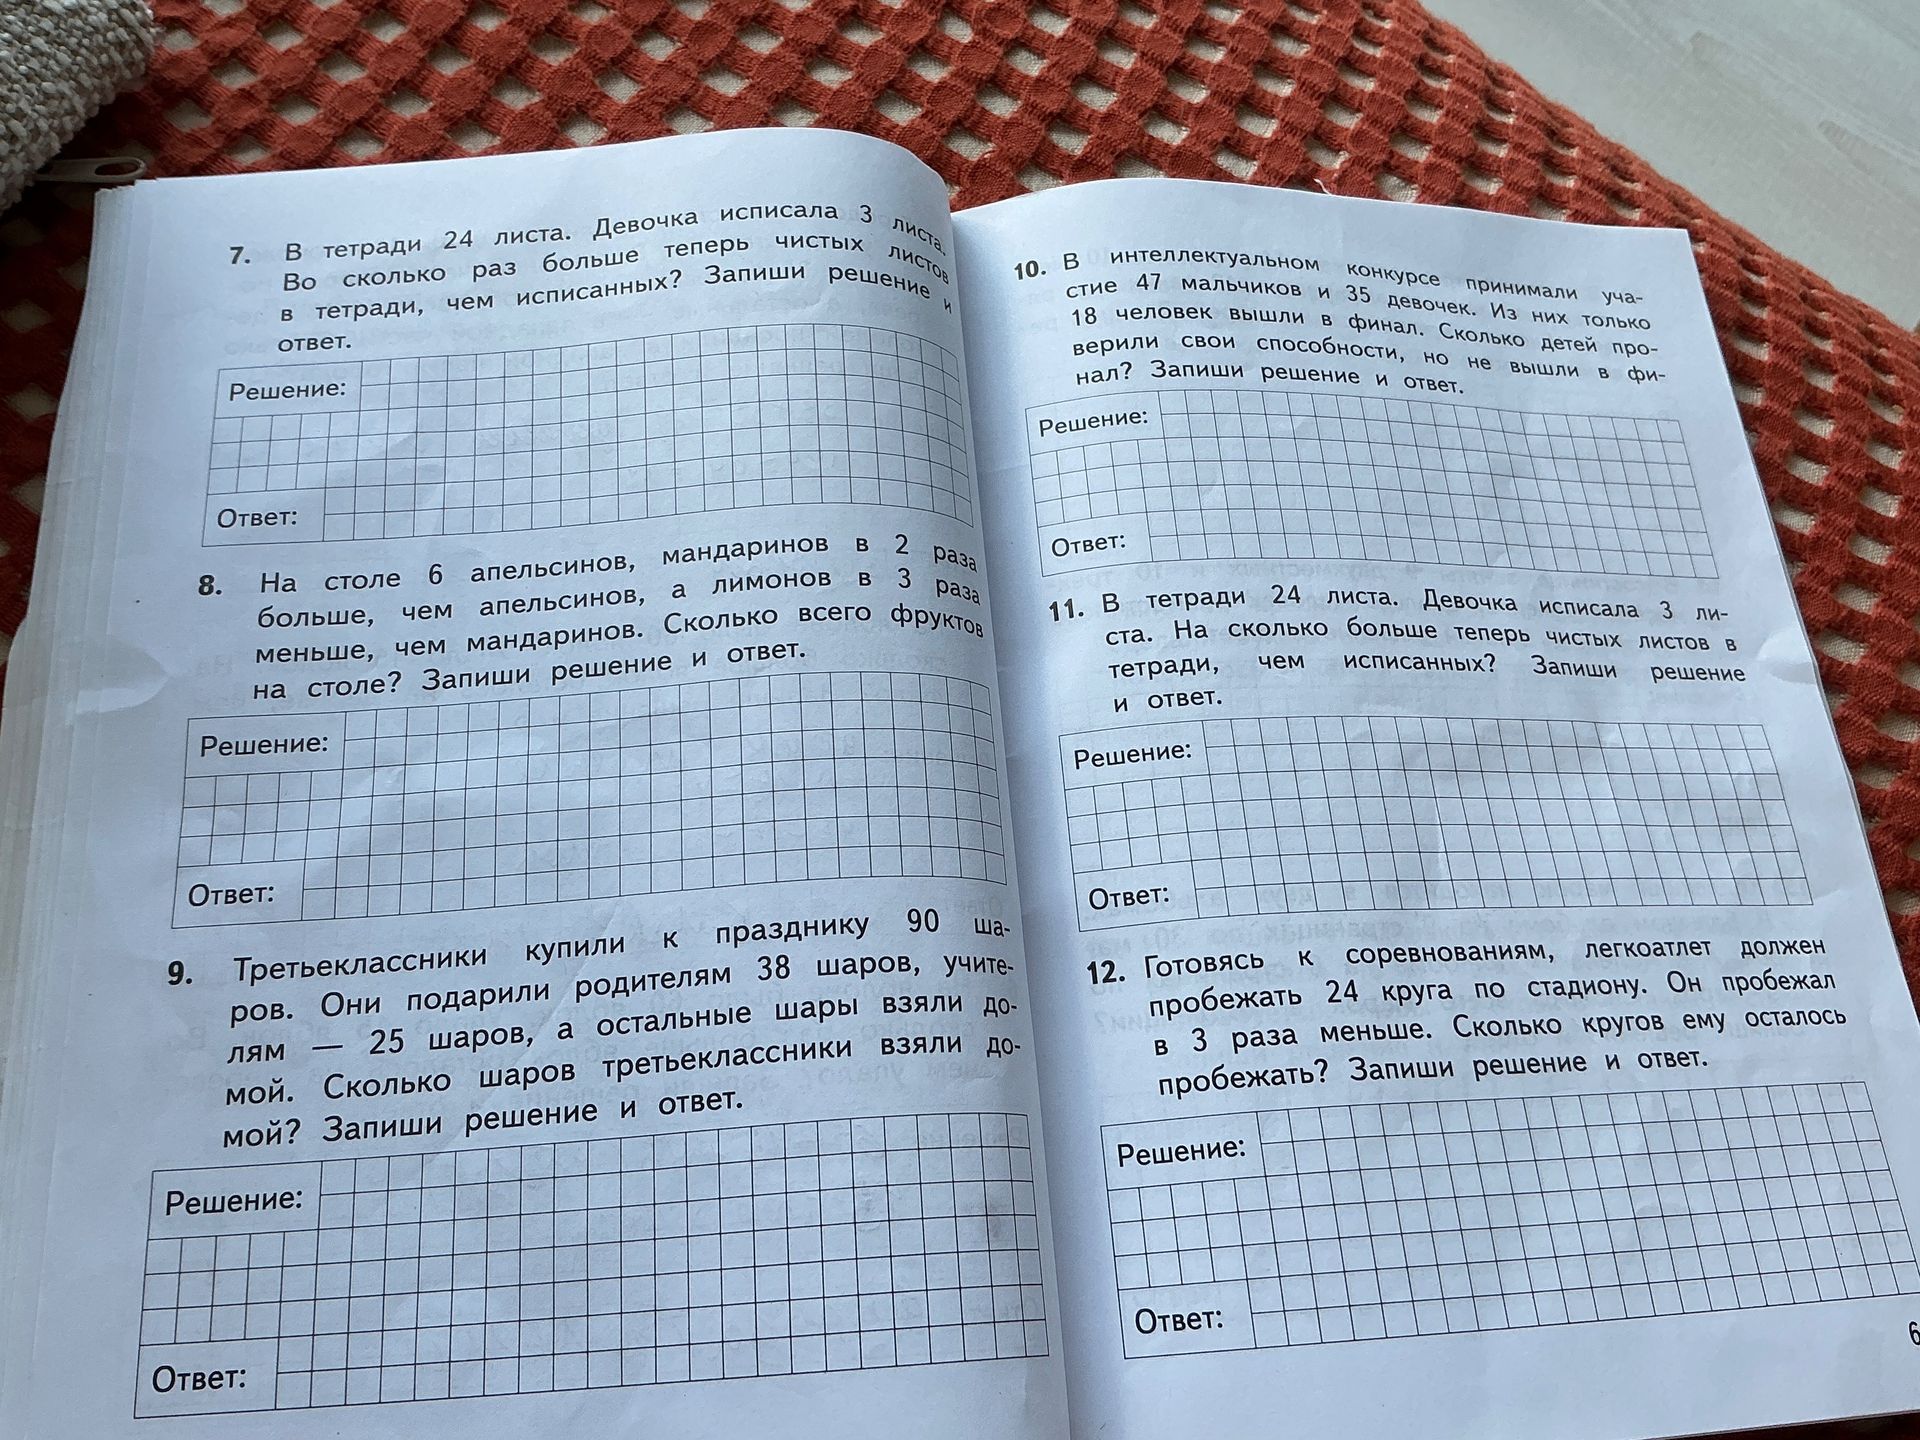 7. В тетради 24 листа. Девочка исписала 3 листа.
Во сколько раз больше теперь чистых листов
в тетради, чем исписанных? Запиши решение и
ответ.
Решение:
Ответ:
8. На столе 6 апельсинов, мандаринов в 2 раза
больше, чем апельсинов, а лимонов в 3 раза
меньше, чем мандаринов. Сколько всего фруктов
на столе? Запиши решение и ответ.
Решение:
Ответ:
9. Третьеклассники купили к празднику 90 ша-
ров. Они подарили родителям 38 шаров, учите-
лям — 25 шаров, а остальные шары взяли до-
мой. Сколько шаров третьеклассники взяли до-
мой? Запиши решение и ответ.
Решение:
Ответ:
10. В интеллектуальном конкурсе принимали уча-
стие 47 мальчиков и 35 девочек. Из них только
18 человек вышли в финал. Сколько детей про-
верили свои способности, но не вышли в фи-
нал? Запиши решение и ответ.
Решение:
Ответ:
11. В тетради 24 листа. Девочка исписала 3 ли-
ста. На сколько больше теперь чистых листов в
тетради, чем исписанных? Запиши решение
и ответ.
Решение:
Ответ:
12. Готовясь к соревнованиям, легкоатлет должен
пробежать 24 круга по стадиону. Он пробежал
в 3 раза меньше. Сколько кругов ему осталось
пробежать? Запиши решение и ответ.
Решение:
Ответ: